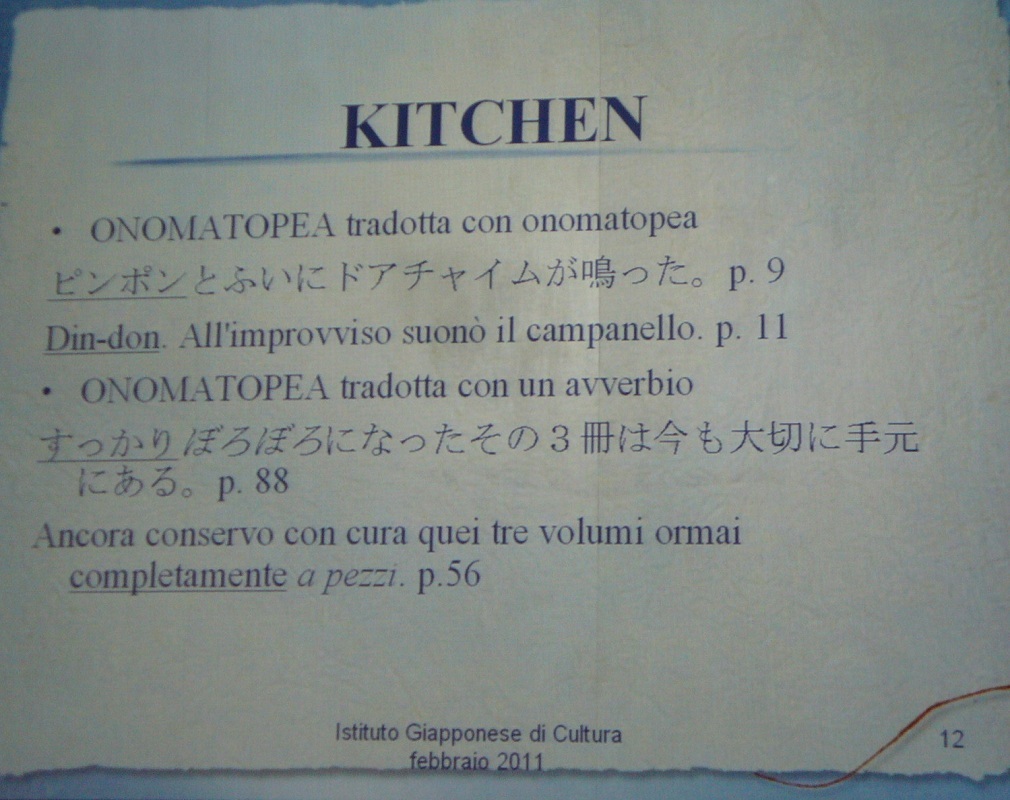 KITCHEN
• ONOMATOPEA tradotta con onomatopea
ピンポンとふいにドアチャイムが鳴った。p. 9
Din-don. All'improvviso suonò il campanello. p. 11
• ONOMATOPEA tradotta con un avverbio
すっかりぼろぼろになったその3冊は今も大切に手元
にある。p. 88
Ancora conservo con cura quei tre volumi ormai
completamente a pezzi. p.56
Istituto Giapponese di Cultura
febbraio 2011
12